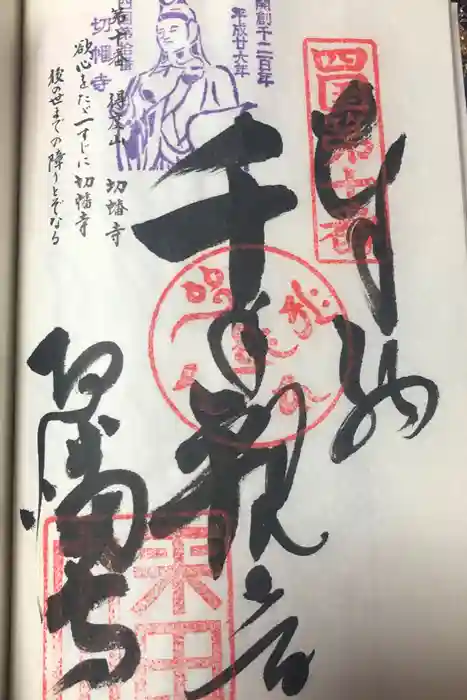 四国第十番
奉納
開創千二百年
平成廿六年
千手観音
四国第拾番
切幡寺
第十番 得度山 切幡寺
欲心をたゞ一すじに切幡寺
後の世までの障りとぞなる
切幡寺